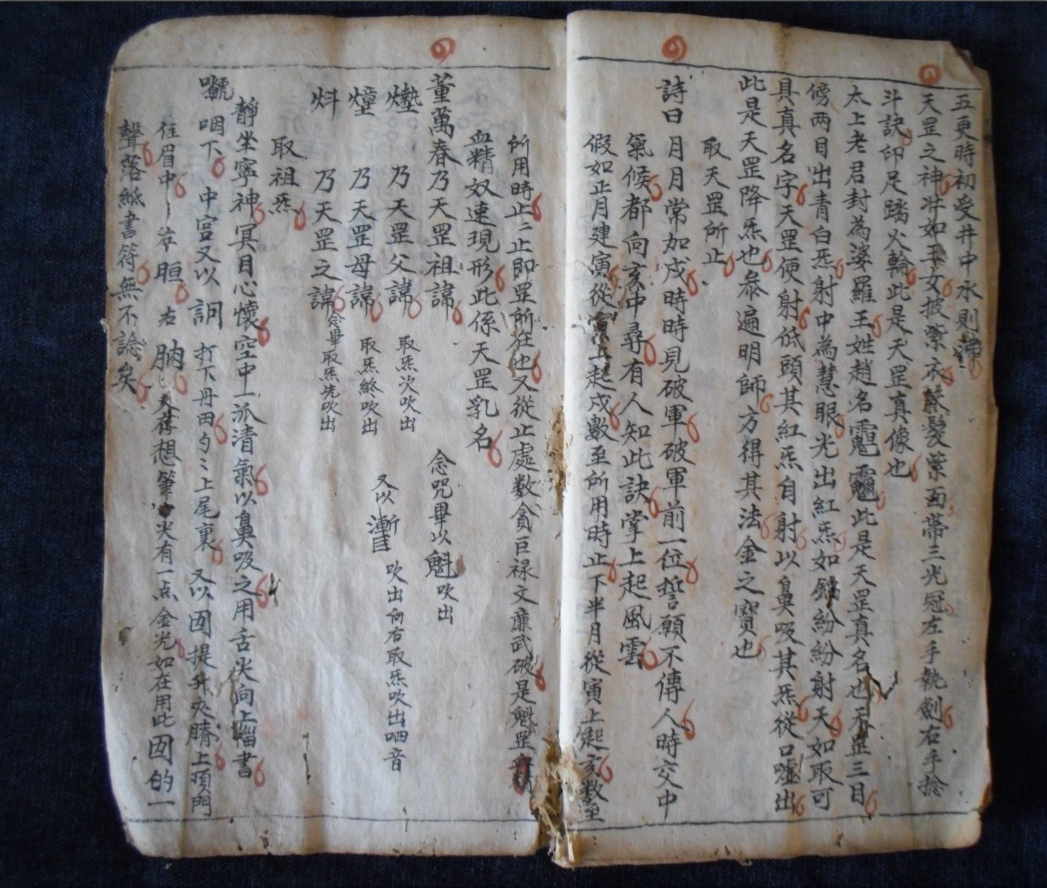 五更時初受井中水則
天罡之神狀如玉女披紫衣鬅髮紫面帶三光冠左手執劍右手捻
斗訣印足踏火輪此是天罡真像也
太上老君封為婆羅王姓趙名此是天罡真名也天罡三目
傍兩目出青白炁射中為慧眼光出紅炁如錦紛紛射天如取可
具真名字天罡便射低頭其紅炁自射以鼻吸其炁從口噓出
此是天罡降炁也叅遍明師方得其法金之寶也
取天罡所止
詩曰月月常加戍時時見破軍破軍前一位誓願不傳人時交中
氣候都向亥中尋有人知此訣掌上起風雲
假如正月建寅從寅上起戍數至所用時止下半月從寅上起亥數至
所用時止止即罡所在也又從止處数貪巨禄文廉武破是魁罡
血精奴速現形此係天罡乳名
董萬春乃天罡祖諱 念咒畢以魁吹出
乃天罡父諱 取炁次吹出 又以 吹出向右取炁吹出哂音
乃天罡母諱 取炁終吹出
炓 乃天罡之諱 念畢取炁先吹出
取祖炁
靜坐寧神冥目心懷空中一派清氣以鼻吸之用舌尖向上書
咽下中宫又以 打下丹田勻勻上尾裏又以囡提升夾脐上頂門
往眉中左烜右朒 存想筆尖有一点金光如在用此囡的一
聲落紙書符無不諭矣